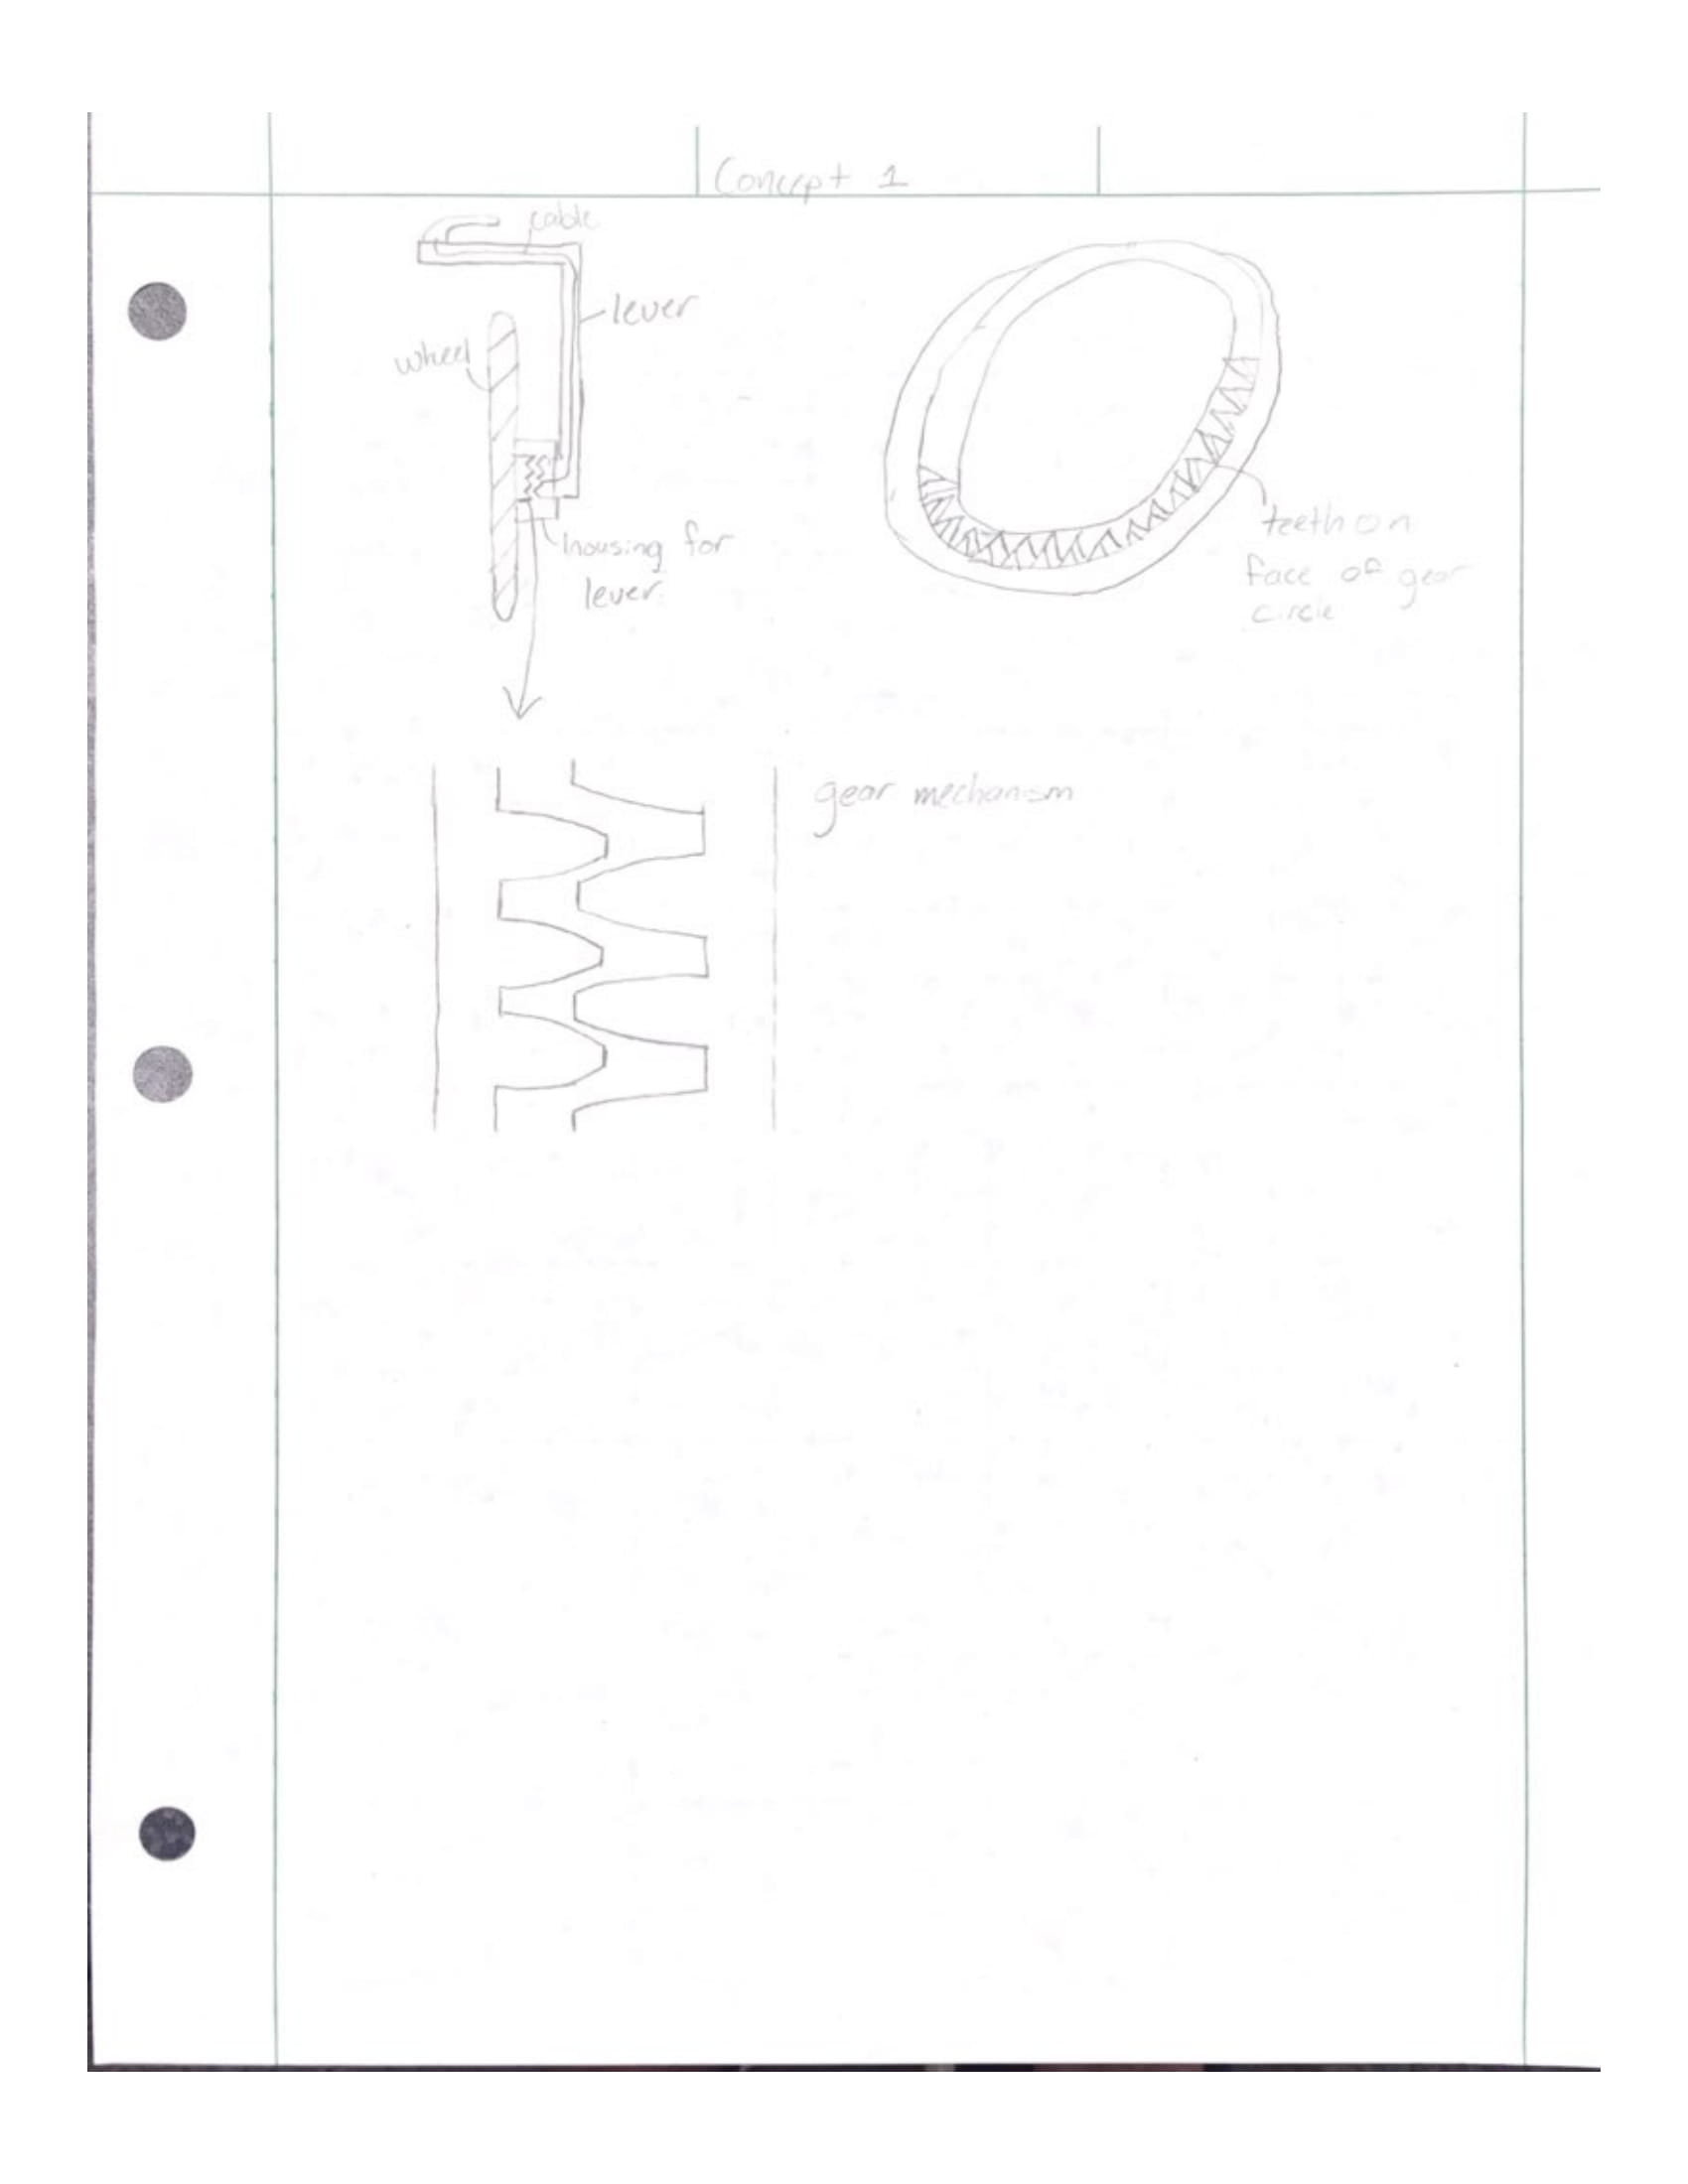 Concept 1
cable
lever
wheel
housing for
lever
teeth on
face of gear
circle
gear mechanism